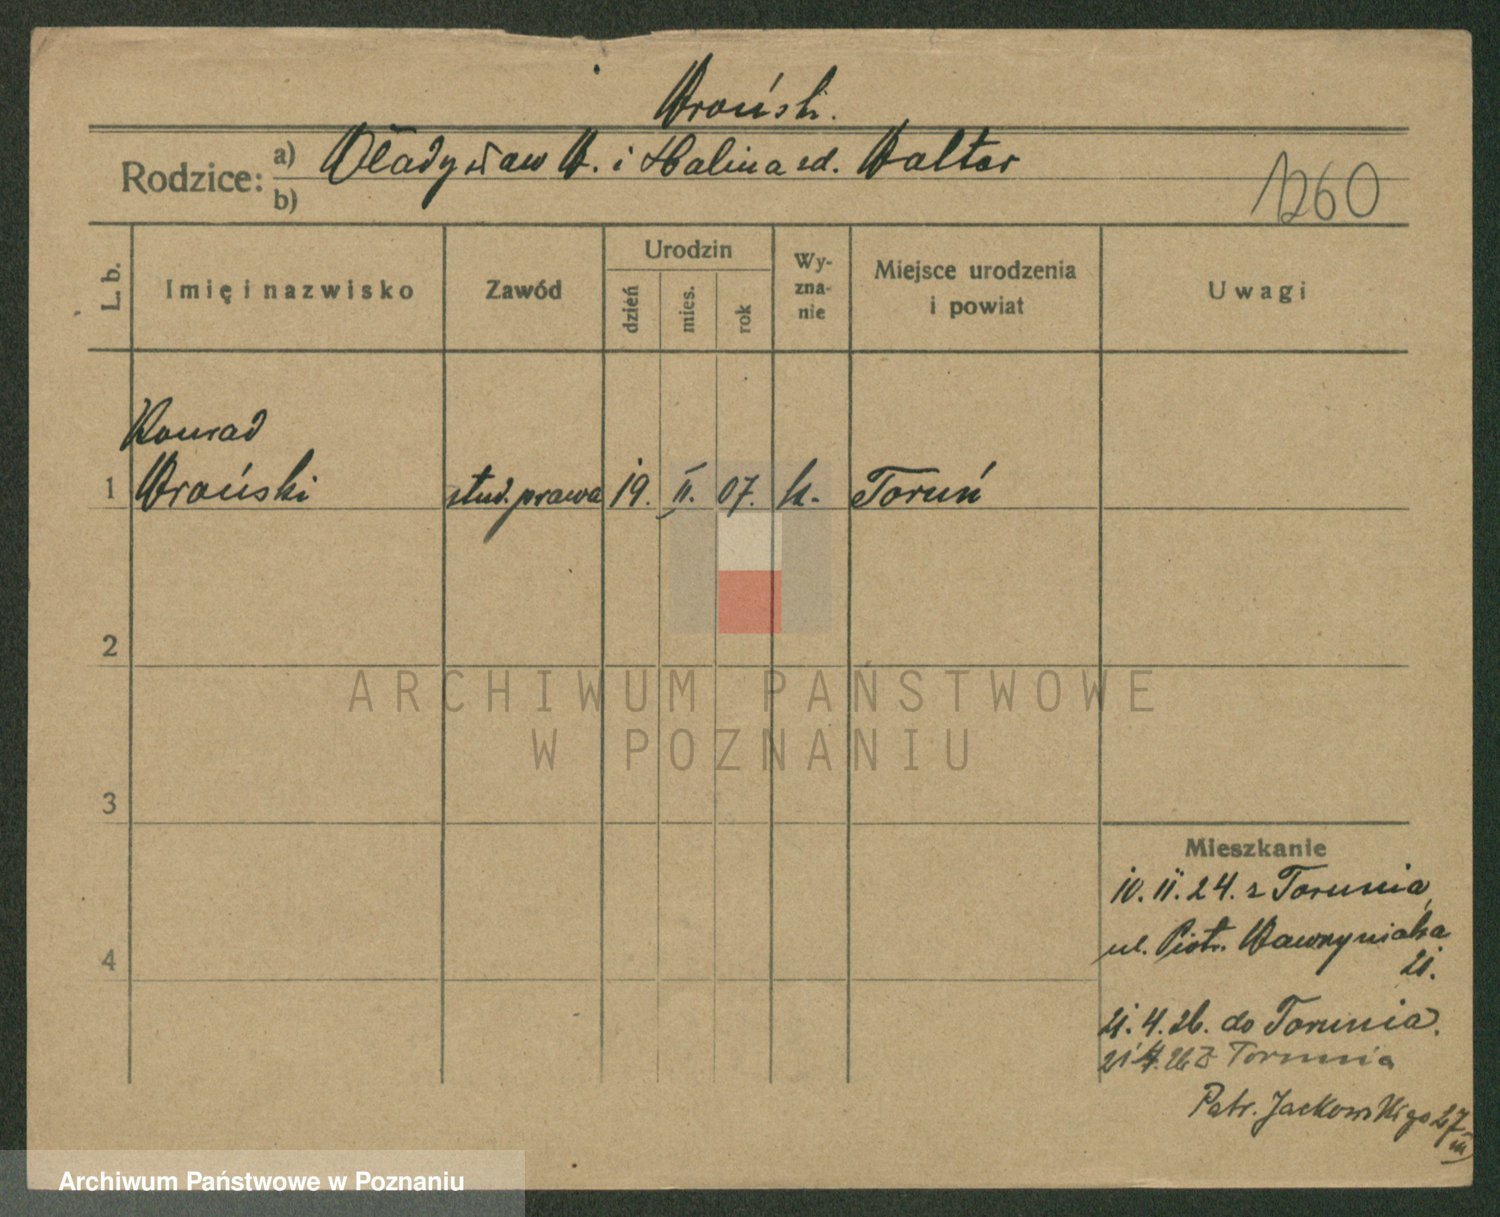 Wroński.
Rodzice:
a) Władysław W. i Halina zd. Walter
b)
1260
L. b.
Imię i nazwisko
Zawód
Urodzin
dzień
mies.
rok
Wy-
zna-
nie
Miejsce urodzenia
i powiat
Uwagi
Konrad
1 Wroński stud. prawa 19. II. 07. k. Toruń
2
3
4
Mieszkanie
10. II. 24. z Torunia,
ul. Piotr. Wawrzyniaka
21.
21. 4. 26. do Torunia.
Torunia
Patr. Jackowskiego 27
III
ARCHIWUM PAŃSTWOWE
W POZNANIU
Archiwum Państwowe w Poznaniu